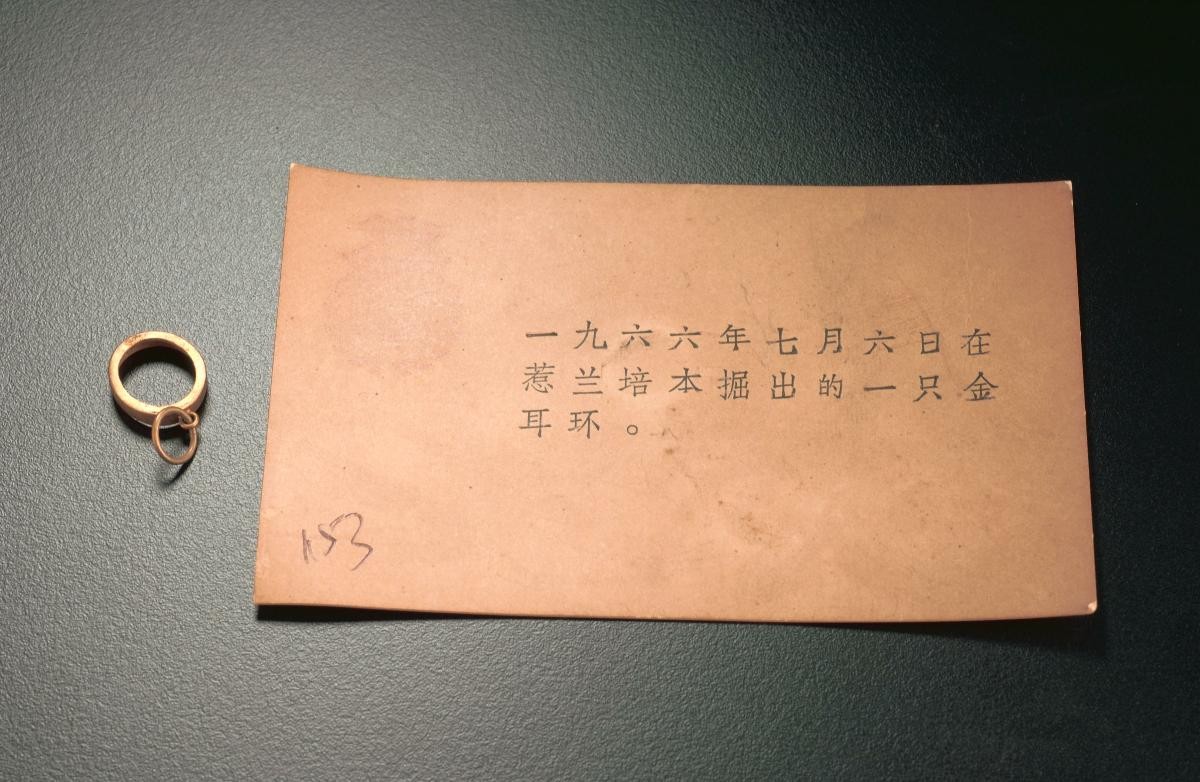 一九六六年七月六日在
惹兰培本掘出的一只金
耳环。
153